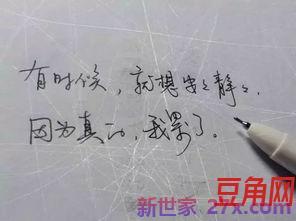 有时候，就想安安静静，
因为真的，我累了。
豆角网
新世家 27x.com